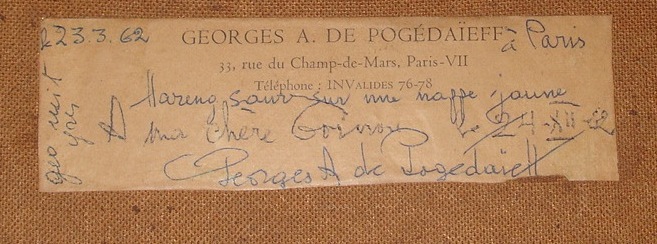 le 23.3.62
GEORGES A. DE POGÉDAÏEFF
à Paris
33, rue du Champ-de-Mars, Paris-VII
Téléphone : INVALIDES 76-78
Hareng saur sur une nappe jaune
A ma Chère
le 24-XII-62
Georges A de Pogédaïeff